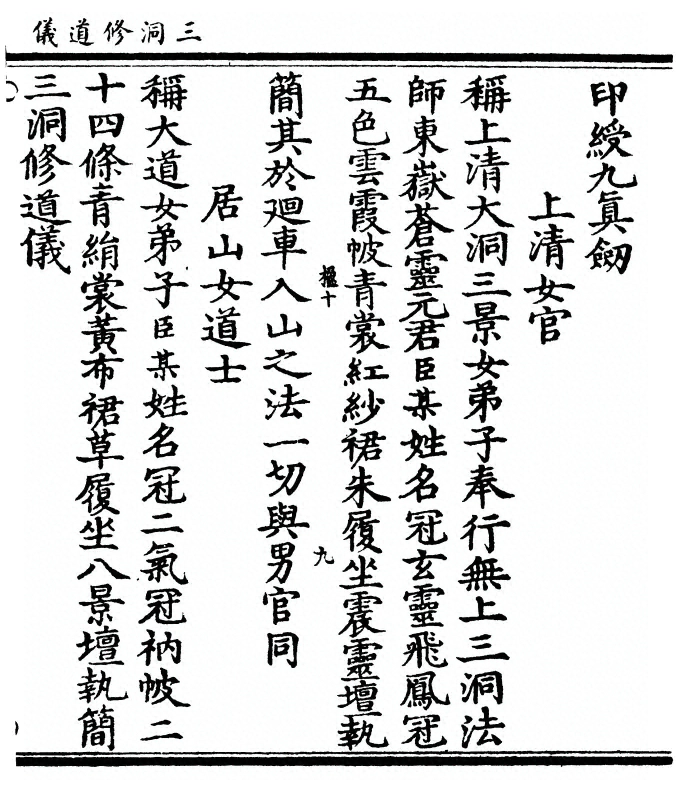 三洞修道儀
印綬九真劒
上清女官
稱上清大洞三景女弟子奉行無上三洞法
師東嶽蒼靈元君臣某姓名冠玄靈飛鳳冠
五色雲霞帔青裳紅紗裙朱履坐震靈壇執
簡其於廻車入山之法一切與男官同
楹十
九
居山女道士
稱大道女弟子臣某姓名冠二氣冠衲帔二
十四條青絹裳黃布裙草履坐八景壇執簡
三洞修道儀